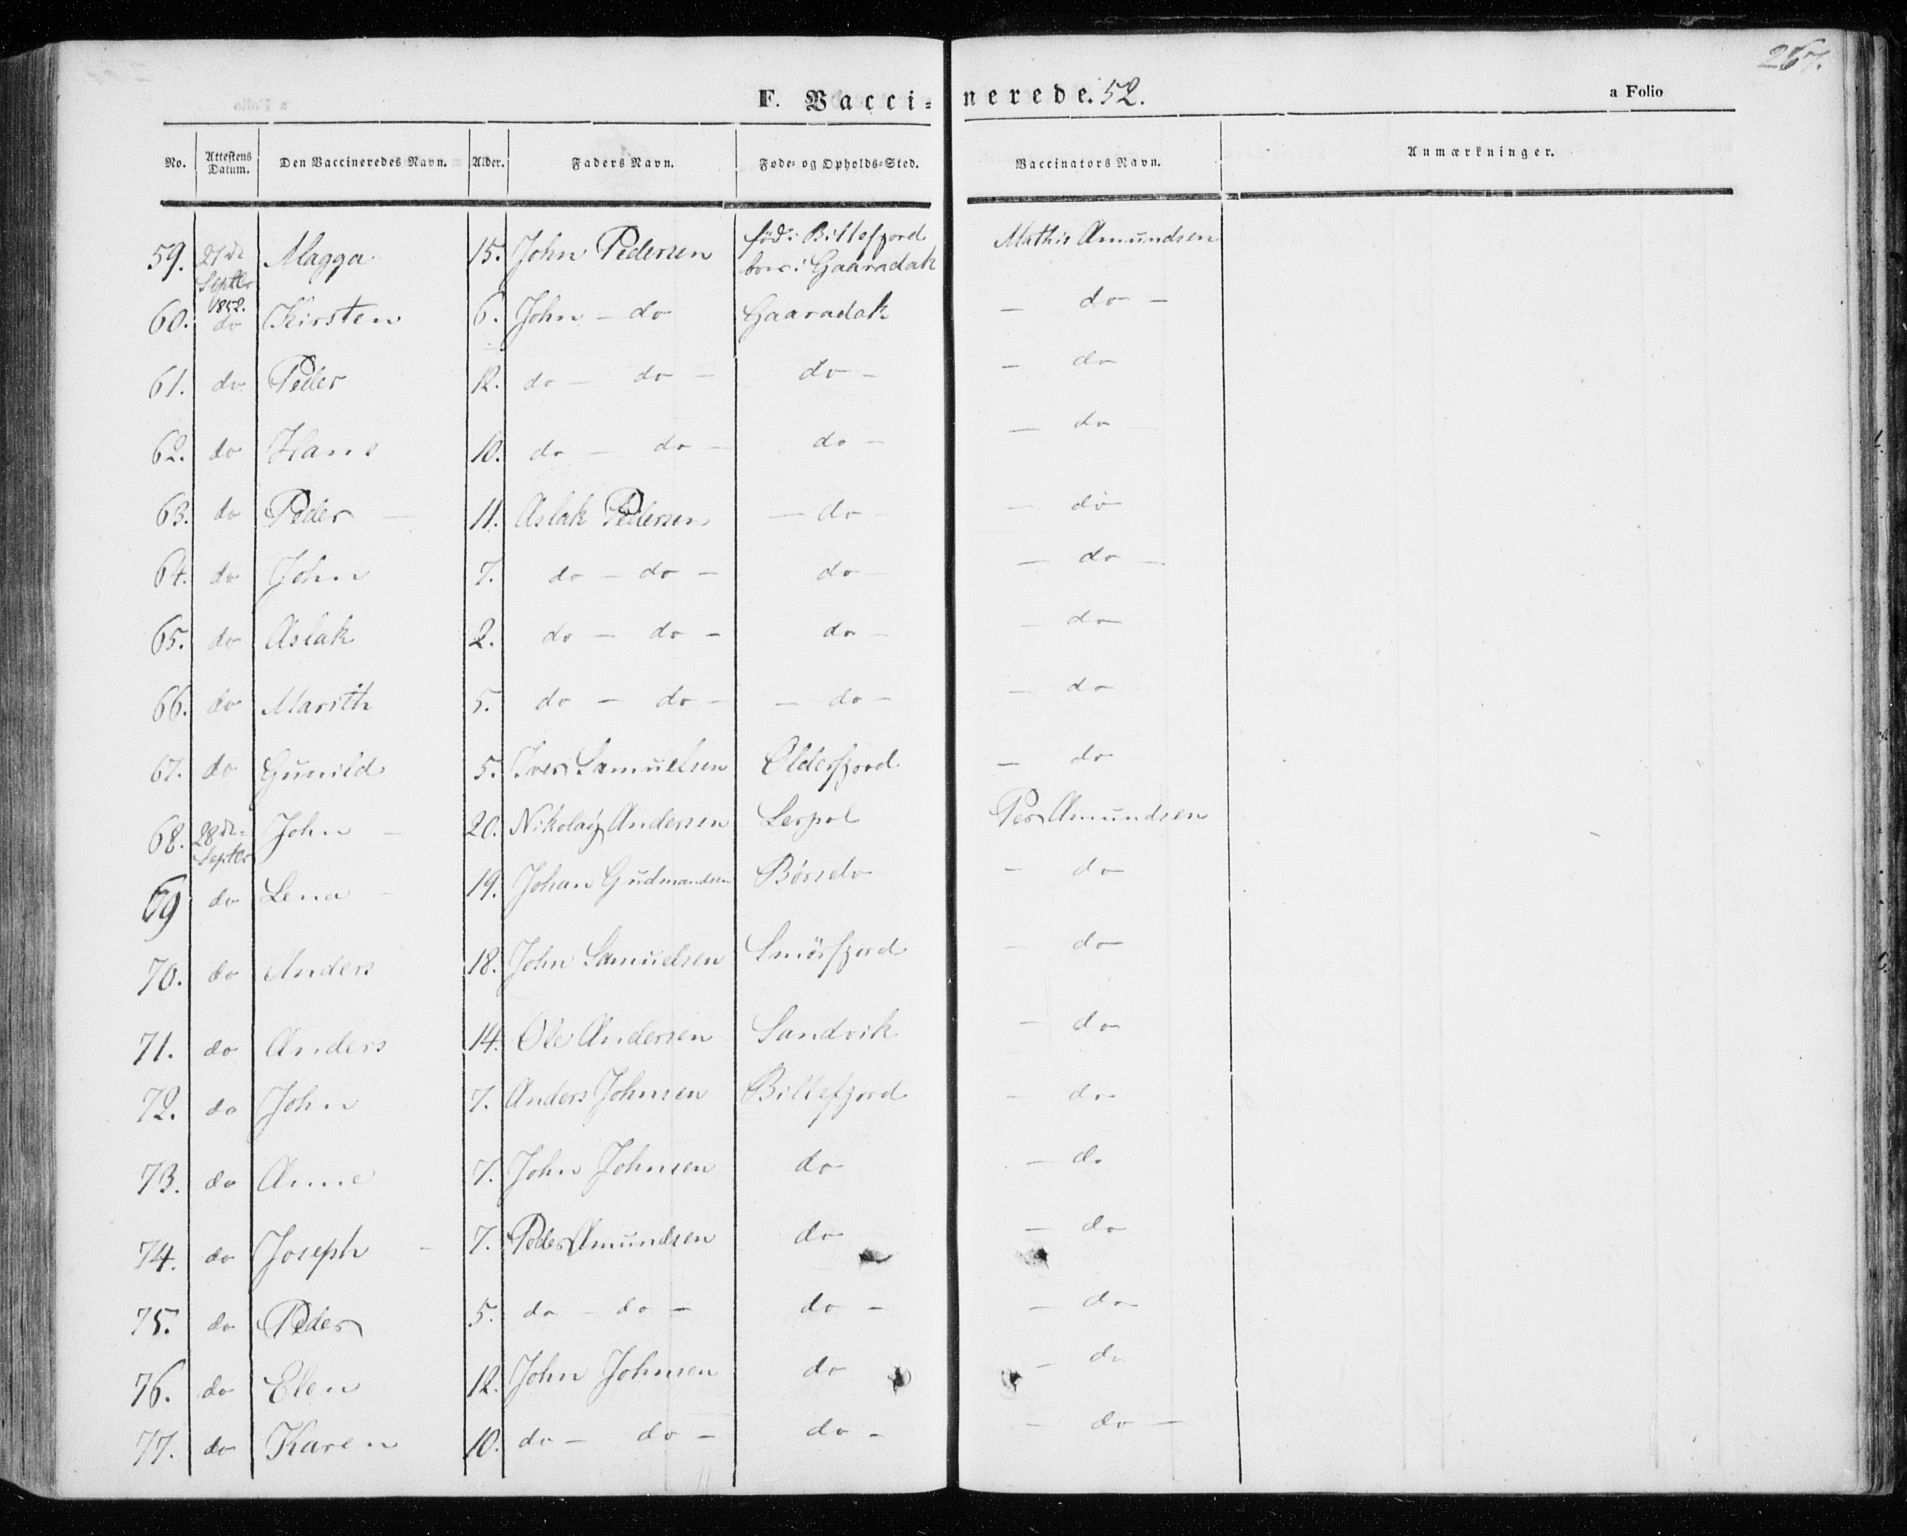 267.
F. Vacci=nerede. 52. a Folio
No. Attestens Datum. Den Vaccineredes Navn. Alder. Faders Navn. Føde- og Opholds-Sted. Vaccinators Navn. Anmærkninger.
59. 27de Septbr 1852. Magga 15. John Pedersen fød i Billefjord boer i Gaaradak Mathis Amundsen
60. do Kirsten 6. John - do Gaaradak - do -
61. do Peder 12. do - do - do - - do
62. do Hans 10. do - do - do - - do -
63. do Peder - 11. Aslak Pedersen - do - - do
64. do John 7. do - do - do - - do -
65. do Aslak 2. do - do - - do - - do
66. do Marith 5. do - do - - do - - do
67. do Gunild 5. Iver Samuelsen Olderfjord - do
68. 28de Septbr John - 20. Nikolaj Andersen Lerpol Per Amundsen
69 do Lena - 19. Johan Gudmundsen Børselv - do
70. do Anders 18. John Samuelsen Smörfjord - do
71. do Anders 14. Ole Andersen Sandvik - do
72. do John 7. Anders Johnsen Billefjord - do
73. do Anne 7. John Johnsen do - do
74. do Joseph - 7. Peder Amundsen do - do
75. do Peder 5. do - do - do - - do
76. do Elen 12. John Johnsen do - do
77. do Karen 10. do - do - do - - do -